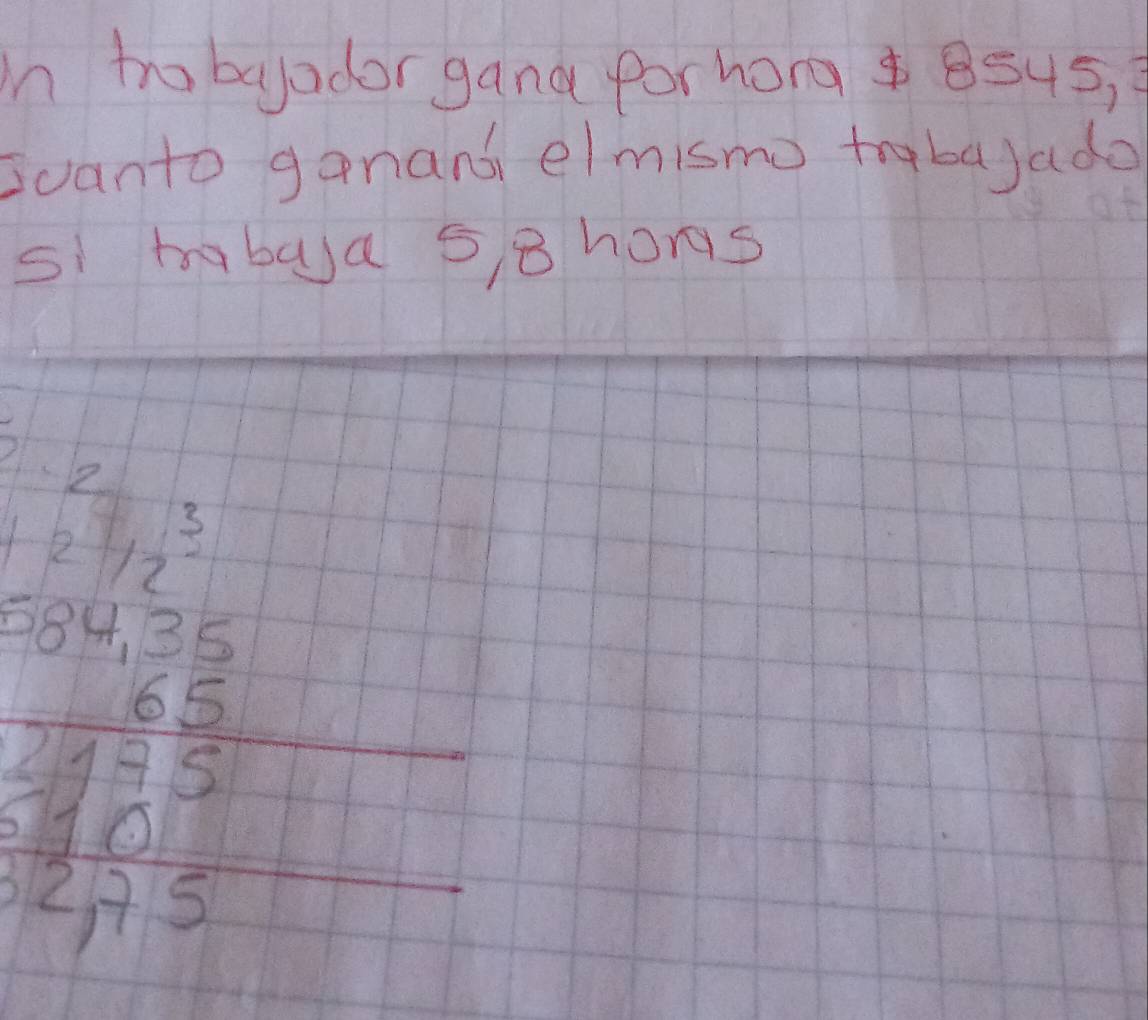 n trabajador gana por hora $ 8545,
cuanto ganará el mismo trabajado
si trabaja 5,8 horas
2
2 1 2 3
584,35
65
2175
610
32,75